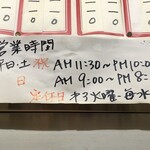 営業時間
平日・土 祝 AM 11:30~PM 10:00
日 AM 9:00~PM 8:
定休日 第3火曜・毎水